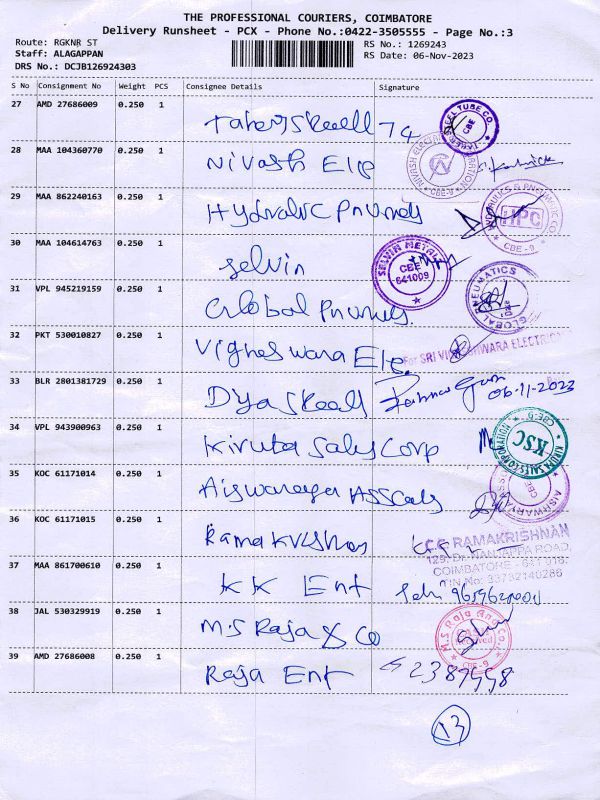 THE PROFESSIONAL COURIERS, COIMBATORE
Delivery Runsheet - PCX - Phone No.:0422-3505555 - Page No.:3
Route: RGKNR ST
RS No.: 1269243
Staff: ALAGAPPAN
RS Date: 06-Nov-2023
DRS No.: DCJB126924303
S No Consignment No Weight PCS Consignee Details Signature
27 AMD 27686009 0.250 1
74 STEEL TUBE CO. CBE
28 MAA 104360770 0.250 1
Nivash Ele NIVASH CBE-9
29 MAA 862240163 0.250 1
Hydraulic Pnumeds HPC CBE-9
30 MAA 104614763 0.250 1
Selvin SELVIN METAL CBE 641009
31 VPL 945219159 0.250 1
Global Pnumeds. GLOBAL PNEUMATICS CBE
32 PKT 530010827 0.250 1
Vigneswara Ele. For SRI VIGNESHWARA ELECTRICAL
33 BLR 2801381729 0.250 1
06-11-2023
34 VPL 943900963 0.250 1
Kiruba Sales Corp KIRUBA SALES CORPORATION KSC CBE-9
35 KOC 61171014 0.250 1
AISWARYA CBE
36 KOC 61171015 0.250 1
Ramakrishnan C.G. RAMAKRISHNAN
129, Dr. NANJAPPA ROAD,
COIMBATORE - 641 018.
TIN No: 33732140286
37 MAA 861700610 0.250 1
KK Ent
38 JAL 530329919 0.250 1
M.S Raja & Co M.S. Raja And Co. CBE-9
39 AMD 27686008 0.250 1
Raja Ent
13